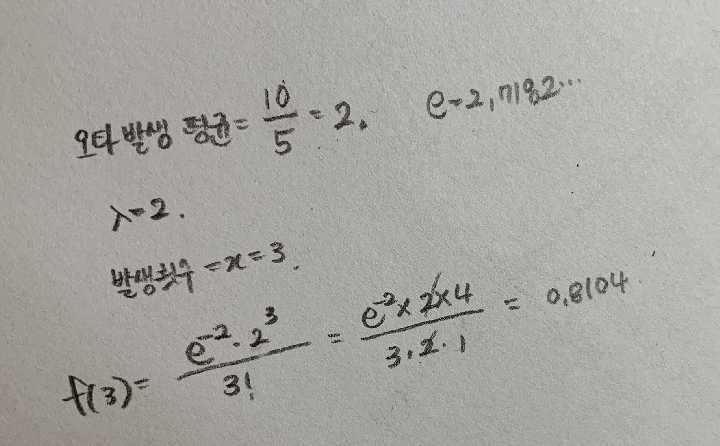 오타 발생 평균 = 10/5 = 2. e = 2,7182...
λ = 2.
발생횟수 = x = 3.
f(3) = e⁻²·2³/3! = e⁻²×2×4/3·2·1 = 0.8104